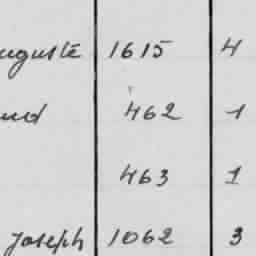 uguste 1615 4
462 1
463 1
Joseph 1062 3